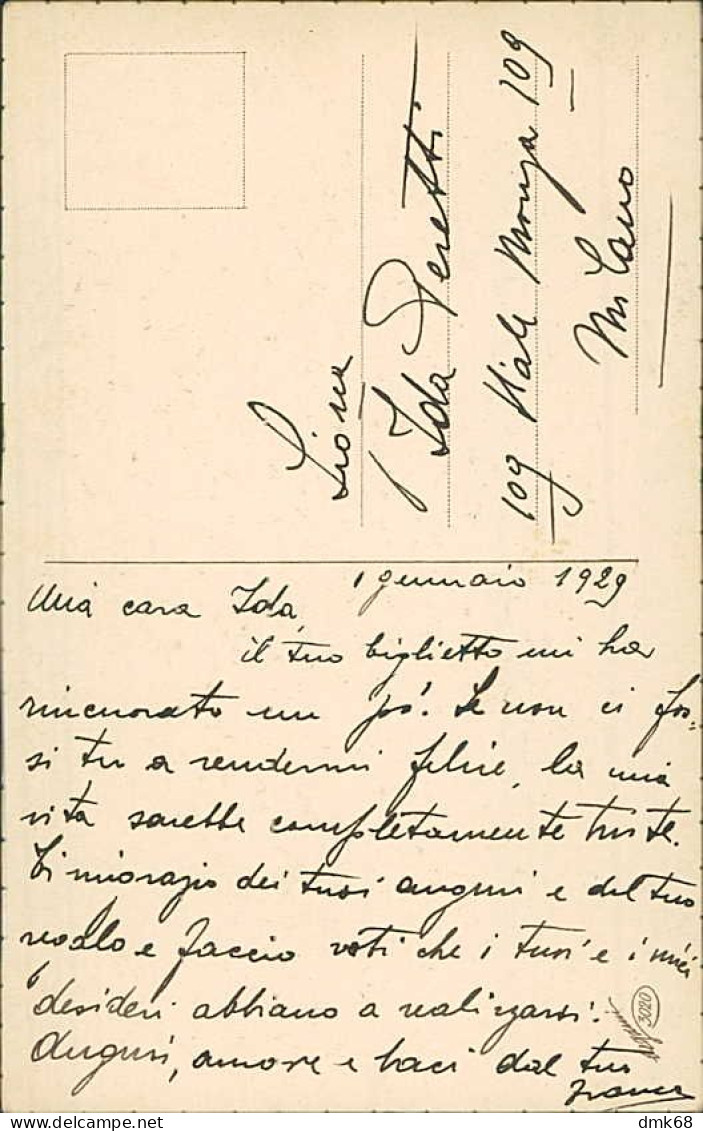 1 gennaio 1929
Mia cara Ida,
il tuo biglietto mi ha
rincuorato un po'. Se non ci fos-
si tu a rendermi felice, la mia
vita sarebbe completamente triste.
Ti ringrazio dei tuoi auguri e del tuo
regalo e faccio voti che i tuoi e i miei
desideri abbiano a realizzarsi.
Auguri, amore e baci dal tuo
Franco
Ida Peretti
109 Viale Monza 109
Milano
3020
dmk68